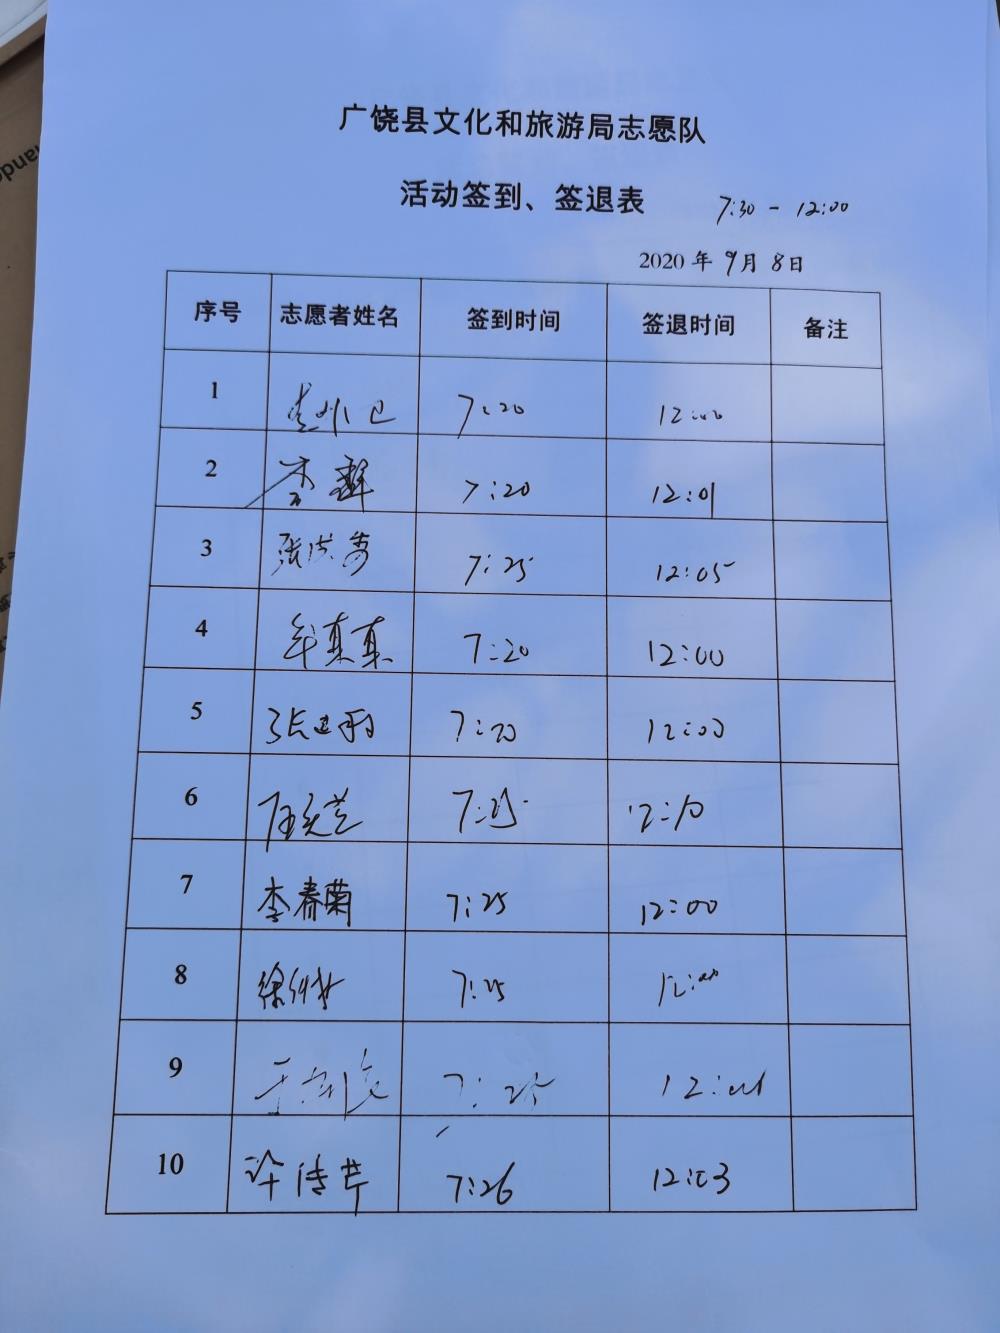 广饶县文化和旅游局志愿队
活动签到、签退表 7:30 - 12:00
2020年9月8日
序号 志愿者姓名 签到时间 签退时间 备注
1 7:20 12:00
2 李 7:20 12:01
3 张洪芳 7:25 12:05
4 牟真真 7:20 12:00
5 张 7:20 12:00
6 7:25 12:10
7 李春菊 7:25 12:00
8 徐 7:25 12:00
9 7:25
10 许传芹 7:26 12:03